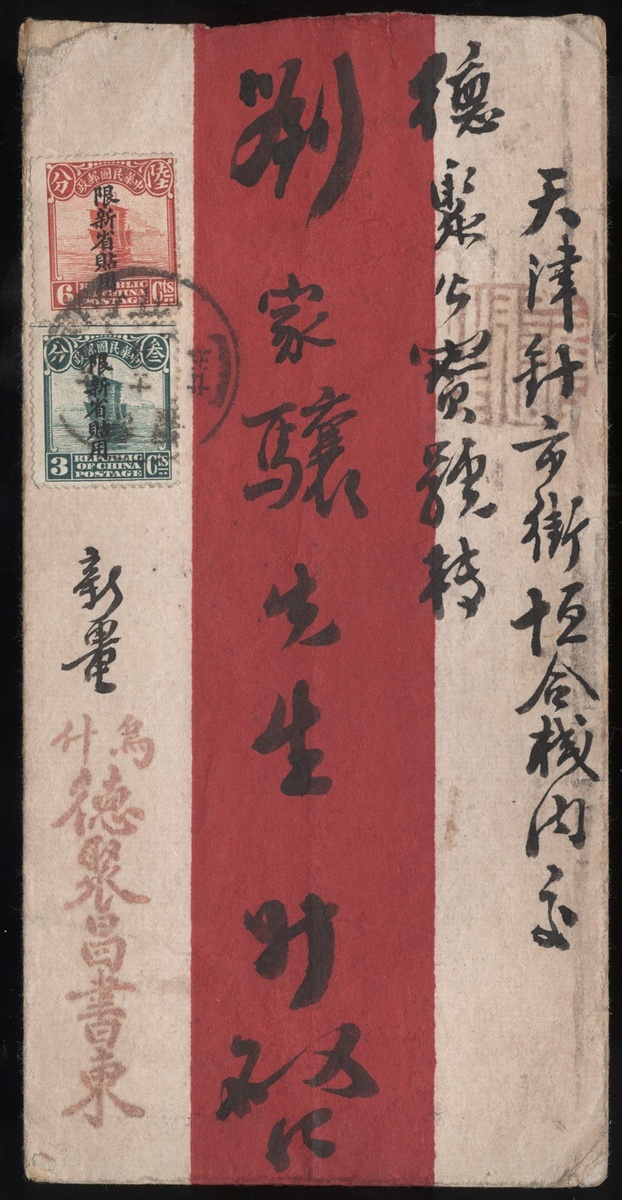 天津針市街恒合棧内交
德聚公寶號轉
劉家驤先生
中華民國郵政
陸分
限新省貼用
REPUBLIC
OF CHINA
6 POSTAGE Cts
中華民國郵政
叁分
限新省貼用
REPUBLIC
OF CHINA
3 POSTAGE Cts
新畺
烏什
德聚昌書柬